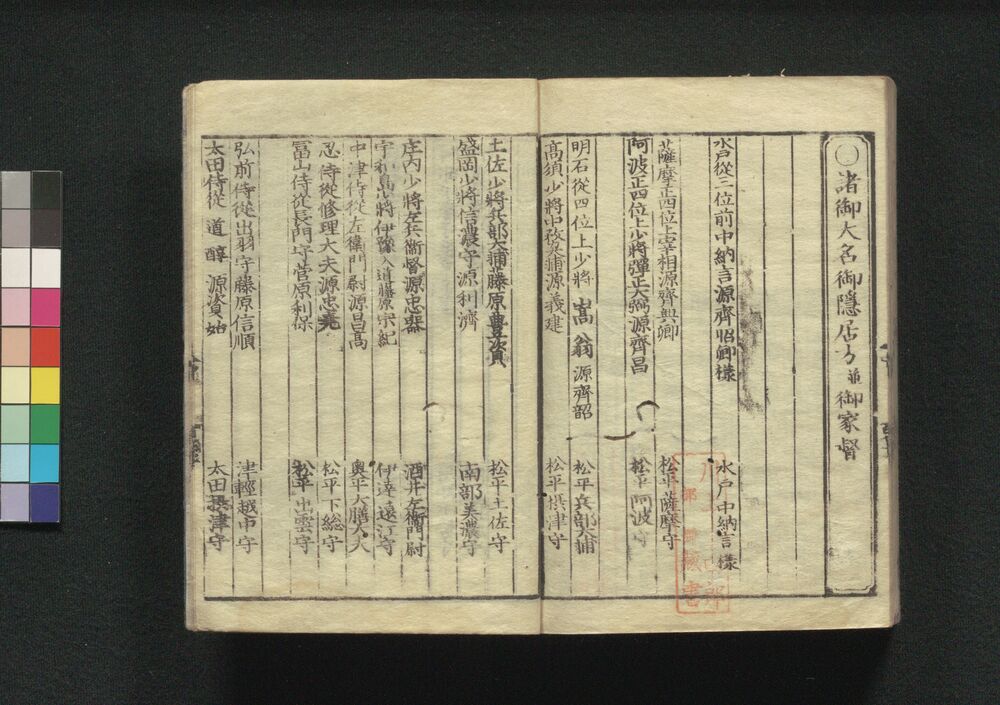 諸御大名御隠居方並御家督
水戸從三位前中納言源齊昭卿様 水戸中納言様
薩摩正四位上宰相源齊興卿 松平薩摩守
阿波正四位上少將彈正大弼源齊昌 松平阿波守
明石從四位上少將 嵩翁 源齊韶 松平兵部大輔
高須少將中務大輔源義建 松平摂津守
土佐少將兵部大輔藤原豊資 松平土佐守
盛岡少將信濃守源利濟 南部美濃守
庄内少將左兵衞督源忠器 酒井左衞門尉
宇和島少將伊豫入道藤原宗紀 伊達遠江守
中津侍従左衞門尉源昌髙 奥平大膳大夫
忍侍從修理大夫源忠堯 松平下総守
冨山侍從長門守菅原利保 松平出雲守
弘前侍從出羽守藤原信順 津輕越中守
太田侍從 道醇 源資始 太田摂津守